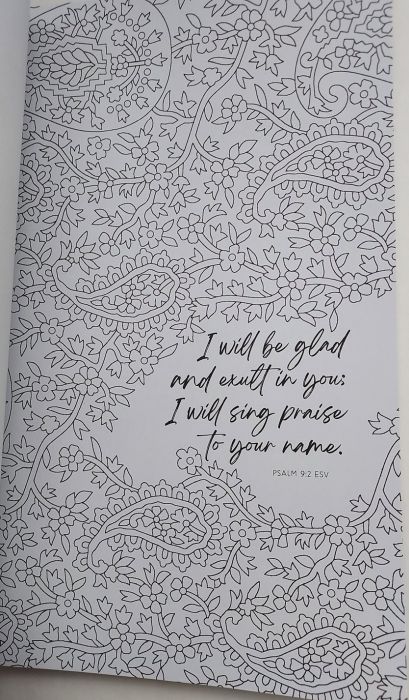 I will be glad
and exult in you:
I will sing praise
to your name.
PSALM 9:2 ESV